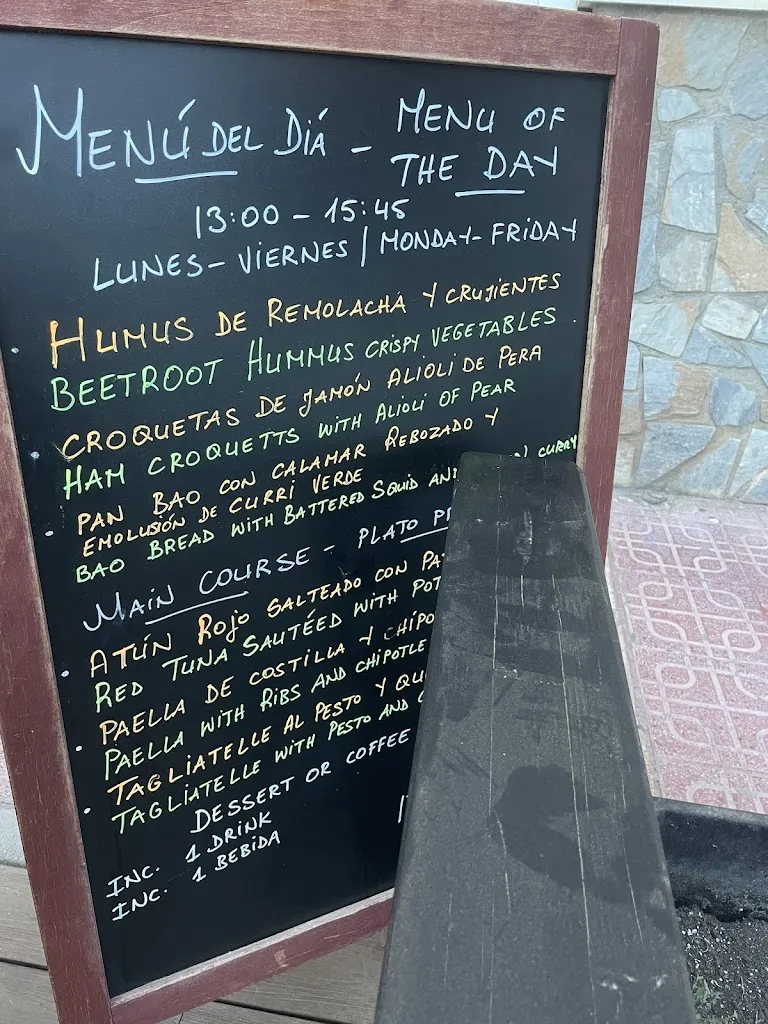 MENÚ DEL DIÁ - MENU OF THE DAY
13:00 - 15:45
LUNES - VIERNES | MONDAY - FRIDAY
HUMUS DE REMOLACHA Y CRUJIENTES
BEETROOT HUMMUS CRISPY VEGETABLES
CROQUETAS DE JAMÓN ALIOLI DE PERA
HAM CROQUETTS WITH ALIOLI OF PEAR
PAN BAO CON CALAMAR REBOZADO Y
EMOLUSIÓN DE CURRI VERDE
BAO BREAD WITH BATTERED SQUID CURRY
MAIN COURSE - PLATO
ATÚN ROJO SALTEADO CON
RED TUNA SAUTÉED WITH
PAELLA DE COSTILLA Y
PAELLA WITH RIBS AND CHIPOTLE
TAGLIATELLE AL PESTO Y
TAGLIATELLE WITH PESTO AND
DESSERT OR COFFEE
INC. 1 DRINK
INC. 1 BEBIDA